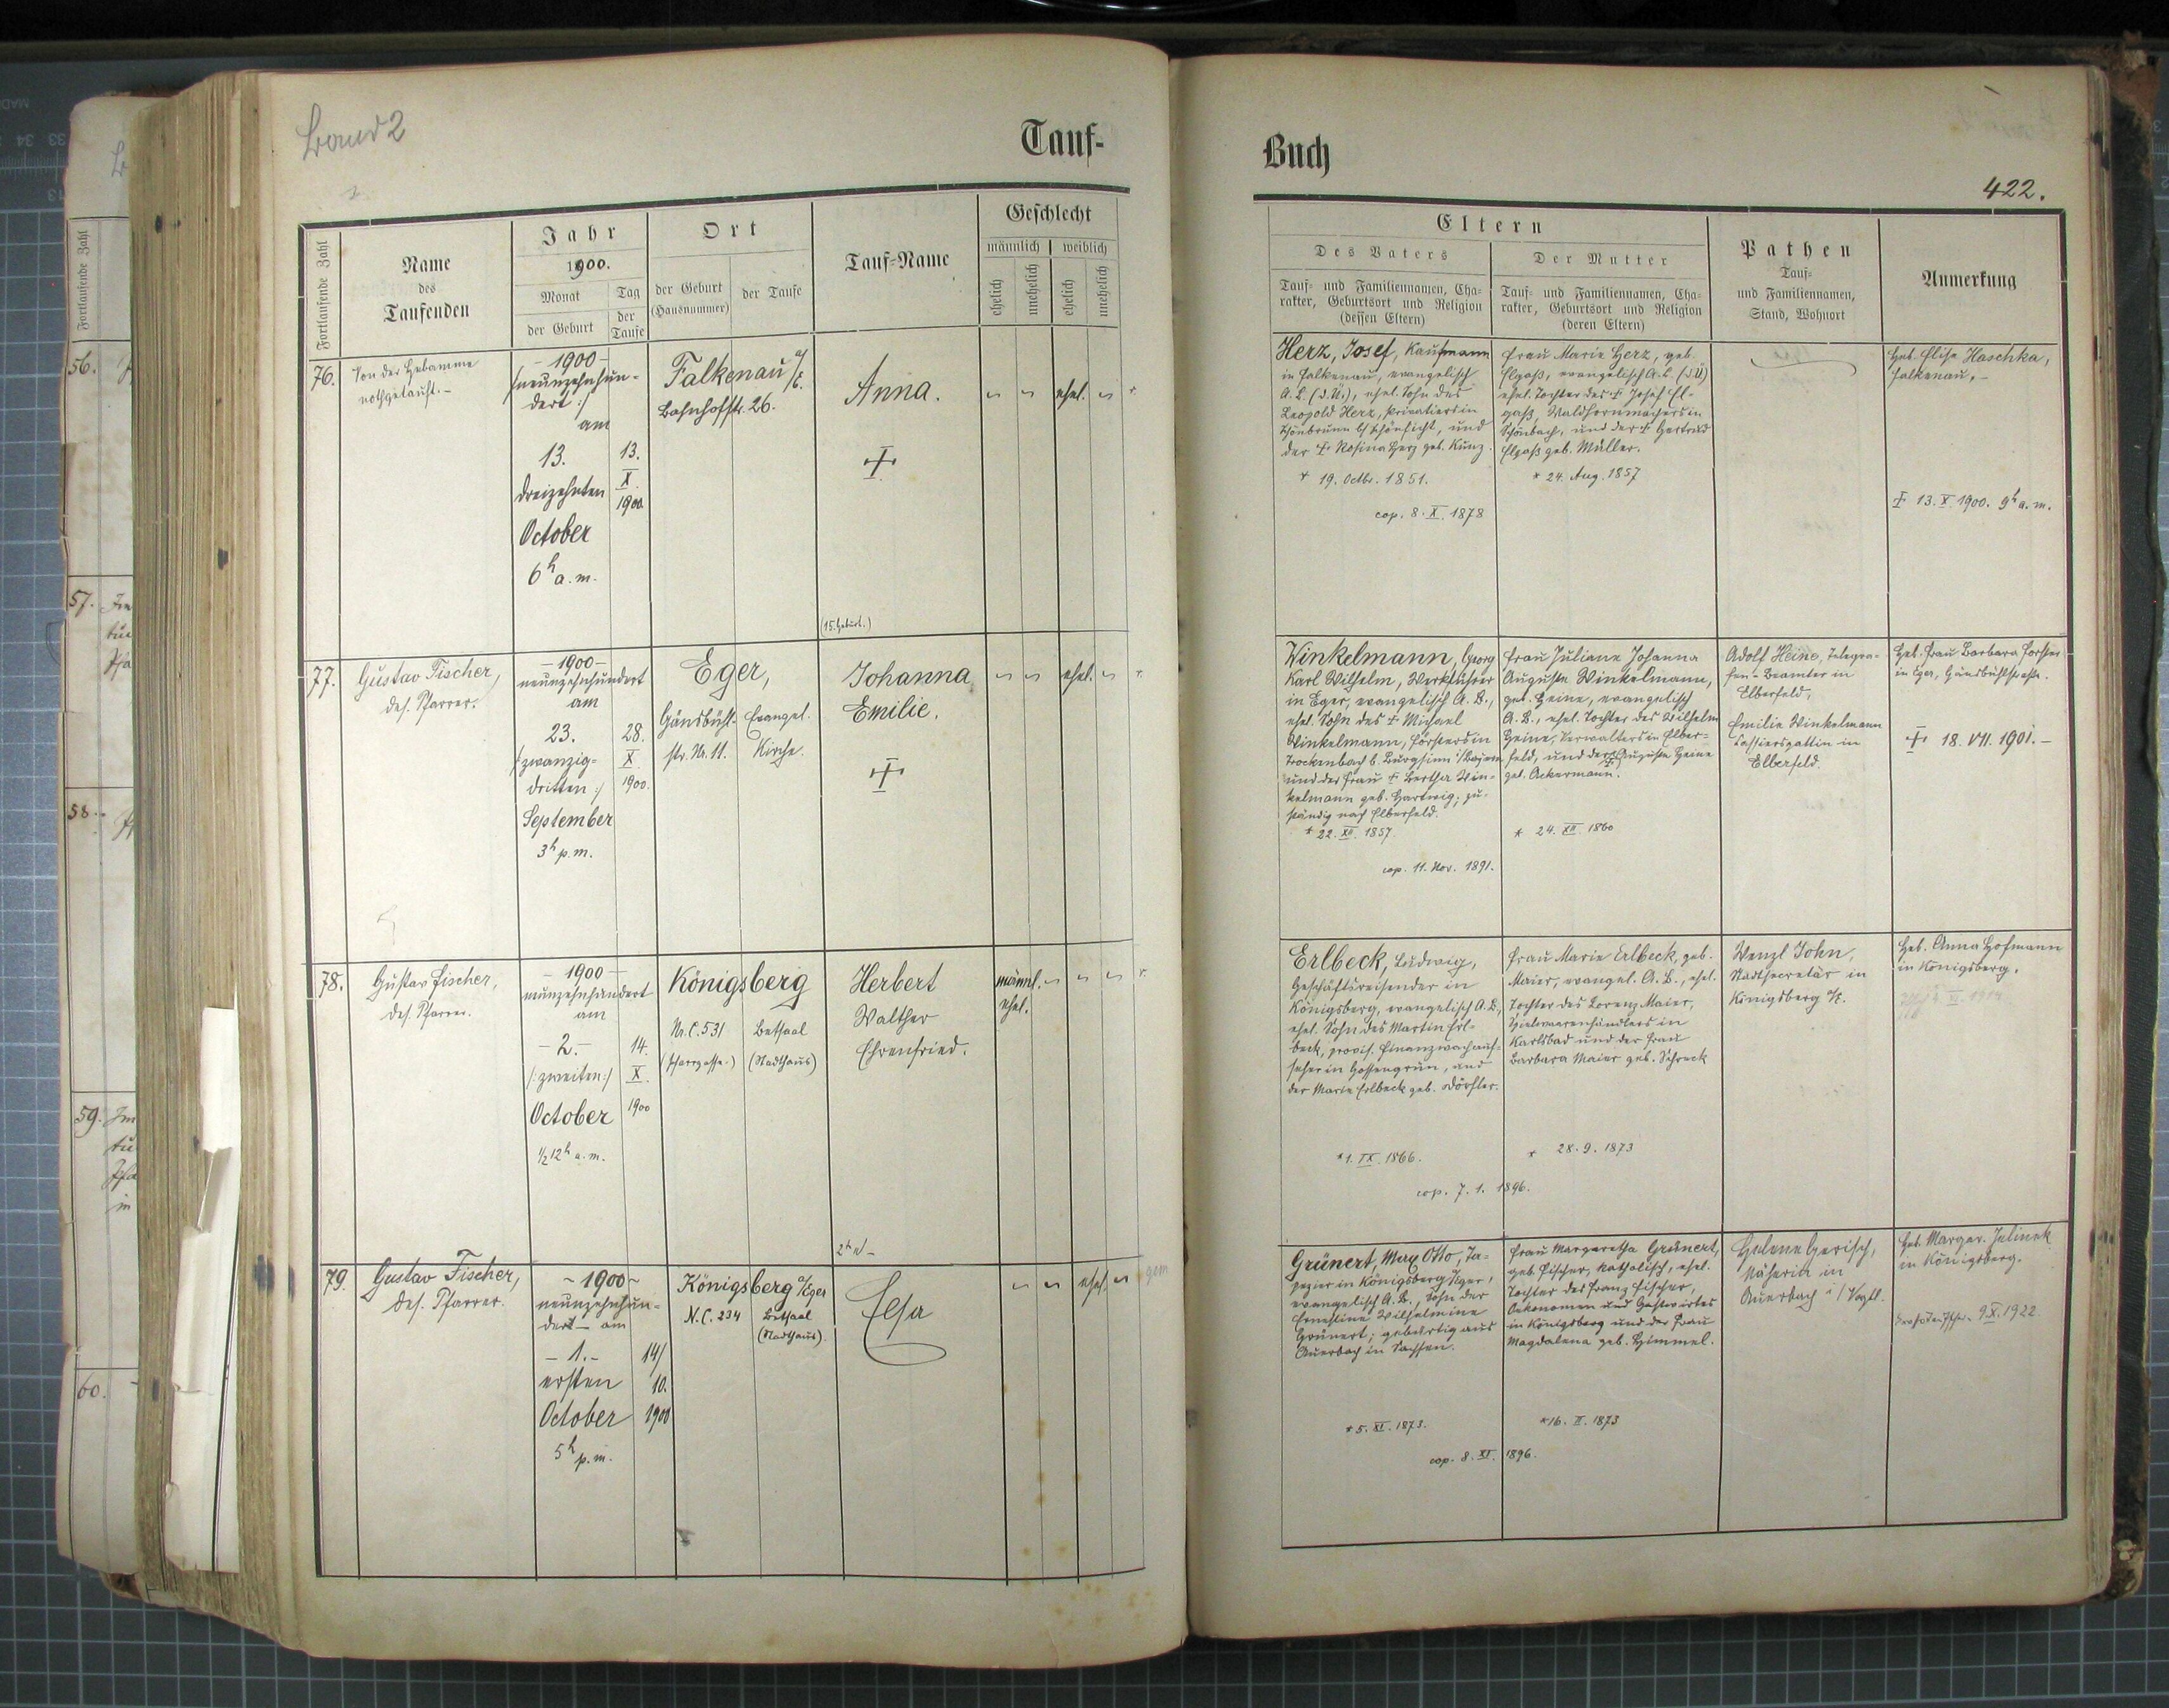 Band 2
Tauf-
Fortlaufende Zahl
Name
des
Taufenden
Jahr
1900.
Monat
der Geburt
Tag
der
Taufe
Ort
der Geburt
(Hausnummer)
der Taufe
Tauf-Name
Geschlecht
männlich
weiblich
ehelich
unehelich
ehelich
unehelich
76.
Von der Hebamme
nothgetauft.-
- 1900 -
/:neunzehnhun-
dert:/
am
13.
dreizehnten
October
6h a. m.
13.
X.
1900.
Falkenau a/E.
Bahnhofstr. 26.
Anna.
ehel.
(15. Geburt.)
77.
Gustav Fischer,
des. Pfarrer.
- 1900 -
neunzehnhundert
am
23.
/:zwanzig-
dritten:/
September
3h p. m.
28.
X.
1900.
Eger,
Gänsbühl-
str. Nr. 11.
Evangel.
Kirche.
Johanna
Emilie.
ehel.
78.
Gustav Fischer,
des. Pfarrer.
- 1900 -
neunzehnhundert
am
- 2. -
/:zweiten:/
October
½12h a. m.
14.
X.
1900
Königsberg
Nr. C. 531
(Pfarrgasse.)
Betsaal
(Stadthaus)
Herbert
Walther
Ehrenfried.
männl.
ehel.
79.
Gustav Fischer,
des. Pfarrer.
~ 1900 ~
neunzehnhun-
dert - am
- 1. -
ersten
October
5h p. m.
14/
10.
1900
Königsberg a/Eger
N. C. 234
Betsaal
(Stadthaus).
Elsa
ehel.
Buch
422.
Eltern
Des Vaters
Tauf- und Familiennamen, Cha-
rakter, Geburtsort und Religion
(dessen Eltern)
Der Mutter
Tauf- und Familiennamen, Cha-
rakter, Geburtsort und Religion
(deren Eltern)
Pathen
Tauf-
und Familiennamen,
Stand, Wohnort
Anmerkung
Herz, Josef, Kaufmann
in Falkenau, evangelisch
A. B. (d. Ü.), ehel. Sohn des
Leopold Herz, Privatiers in
Schönbrunn b/ Schönficht, und
der + Rosina Herz geb. Kunz.
* 19. Octbr. 1851.
cop. 8. X. 1878
Frau Marie Herz, geb.
Elgaß, evangelisch A. B. (d. Ü)
ehel. Tochter des + Josef El-
gaß, Waldhornmachers in
Schönbach, und der + Gertrud
Elgaß geb. Müller.
* 24. Aug. 1857
Heb. Elise Haschka,
Falkenau. -
+ 13. X 1900. 9h a. m.
Winkelmann, Georg
Karl Wilhelm, Werkführer
in Eger, evangelisch A. B.,
ehel. Sohn des + Michael
Winkelmann, Försters in
Trockenbach b. Burgsinn i/Bayern
und der Frau + Bertha Win-
kelmann geb. Hartwig; zu-
ständig nach Elberfeld.
* 22. XII. 1857.
cop. 11. Nov. 1891.
Frau Juliane Johanna
Auguste Winkelmann,
geb. Heine, evangelisch
A. B., ehel. Tochter des Wilhelm
Heine, Verwalters in Elber-
feld, und der + Auguste Heine
geb. Ackermann.
* 24. XII. 1860
Adolf Heine, Telegra-
fen-Beamter in
Elberfeld,
Emilie Winkelmann
Cassiersgattin in
Elberfeld.
Heb. Frau Barbara Forster
in Eger, Gänsbühlstraße.
+ 18. VII. 1901. -
Erlbeck, Ludwig,
Geschäftsreisender in
Königsberg, evangelisch A. B.,
ehel. Sohn des Martin Erl-
beck, provis. Finanzwachauf-
seher in Gossengrün, und
der Marie Erlbeck geb. Dörfler.
* 1. IX. 1866.
cop. 7. 1. 1896.
Frau Marie Erlbeck, geb.
Maier, evangel. A. B., ehel.
Tochter des Lorenz Maier,
Spielwaarenhändlers in
Karlsbad und der Frau
Barbara Maier geb. Schreck
* 28. 9. 1873
Wenzl John,
Stadtsecretär in
Königsberg a/E.
Heb. Anna Hofmann
in Königsberg.
Grünert, Max Otto, Ta-
pezier in Königsberg a/Eger,
evangelisch A. B., Sohn der
Ernestine Wilhelmine
Grünert; gebürtig aus
Auerbach in Sachsen.
* 5. XI. 1873.
cop. 8. XI. 1896.
Frau Margaretha Grünert,
geb. Fischer, katholisch, ehel.
Tochter des Franz Fischer,
Oekonomen und Gastwirtes
in Königsberg und der Frau
Magdalena geb. Himmel.
* 16. II. 1873
Helene Gerisch,
Näherin in
Auerbach i/Vogtl.
Heb. Margar. Jelinek
in Königsberg.
9. X. 1922
56.
57.
58.
59.
60.